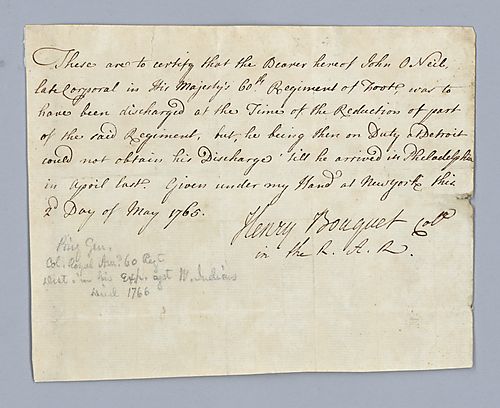 These are to certify that the Bearer hereof John O Neil,
late Corporal in His Majesty's 60th Regiment of Foot, was to
have been discharged at the Time of the Reduction of part
of the said Regiment, but, he being then on Duty at Detroit
could not obtain his Discharge 'till he arrived in Philadelphia
in April last. Given under my Hand at New York this
2d Day of May 1765.
Henry Bouquet Coll
in the R. A. R.
Brig Gen.
Col. Royal Am. 60 Regt
Dist. in his Exp. agst W. Indians
Died 1766